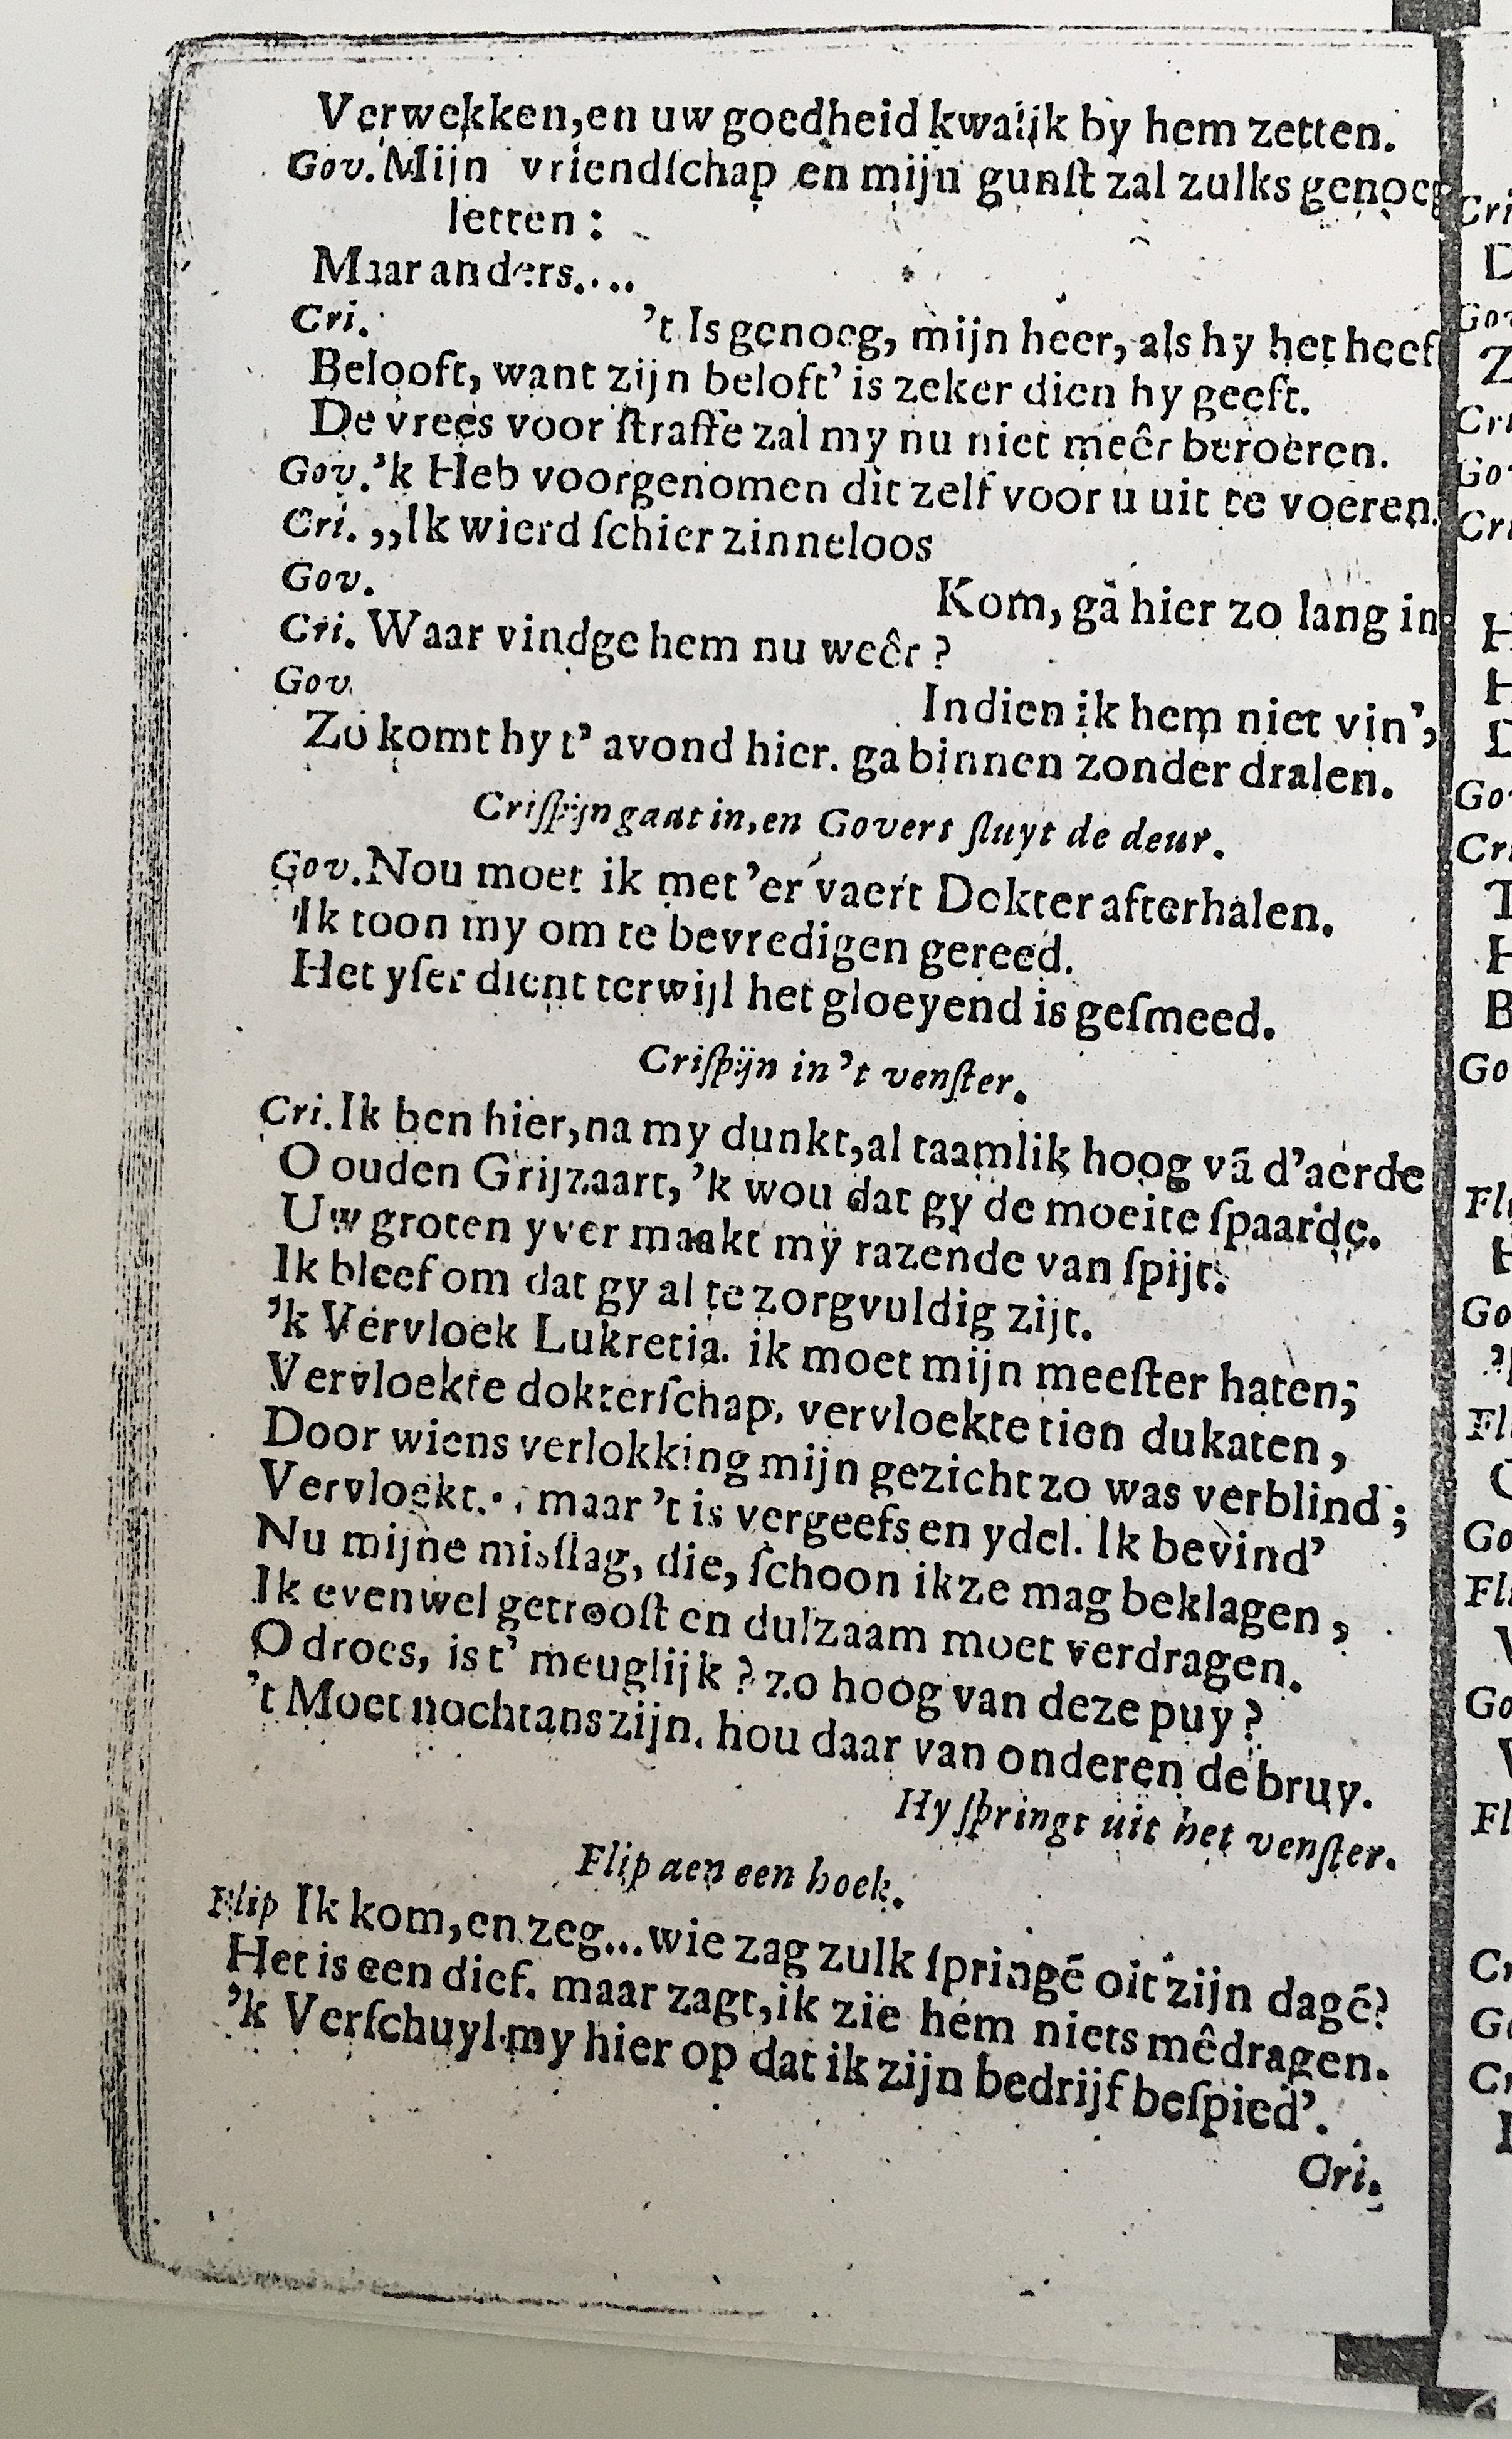 Verwekken, en uw goedheid kwalijk by hem zetten.
Gov. Mijn vriendſchap en mijn gunſt zal zulks genoeg
letten :
Maar anders....
Cri. 't Is genoeg, mijn heer, als hy het heef
Belooft, want zijn beloft' is zeker dien hy geeft.
De vrees voor ſtraffe zal my nu niet meêr beroeren.
Gov. 'k Heb voorgenomen dit zelf voor u uit te voeren.
Cri. ,,Ik wierd ſchier zinneloos
Gov. Kom, gâ hier zo lang in
Cri. Waar vindge hem nu weêr ?
Gov. Indien ik hem niet vin',
Zo komt hy t' avond hier. ga binnen zonder dralen.
Criſpijn gaat in, en Govert ſluyt de deur.
Gov. Nou moet ik met 'er vaert Dokter afterhalen.
Ik toon my om te bevredigen gereed.
Het yſer dient terwijl het gloeyend is geſmeed.
Criſpijn in 't venſter.
Cri. Ik ben hier, na my dunkt, al taamlik hoog vã d'aerde
O ouden Grijzaart, 'k wou dat gy de moeite ſpaarde.
Uw groten yver maakt my razende van ſpijt.
Ik bleef om dat gy al te zorgvuldig zijt.
'k Vervloek Lukretia. ik moet mijn meeſter haten;
Vervloekte dokterſchap. vervloekte tien dukaten,
Door wiens verlokking mijn gezicht zo was verblind;
Vervloekt... maar 't is vergeefs en ydel. Ik bevind'
Nu mijne misſlag, die, ſchoon ik ze mag beklagen,
Ik evenwel getrooſt en dulzaam moet verdragen.
O droes, is t' meuglijk ? zo hoog van deze puy ?
't Moet nochtans zijn. hou daar van onderen de bruy.
Hy ſpringt uit het venſter.
Flip aen een hoek.
Flip Ik kom, en zeg... wie zag zulk ſpringẽ oit zijn dagẽ?
Het is een dief. maar zagt, ik zie hem niets mêdragen.
'k Verſchuyl my hier op dat ik zijn bedrijf beſpied'.
Cri.